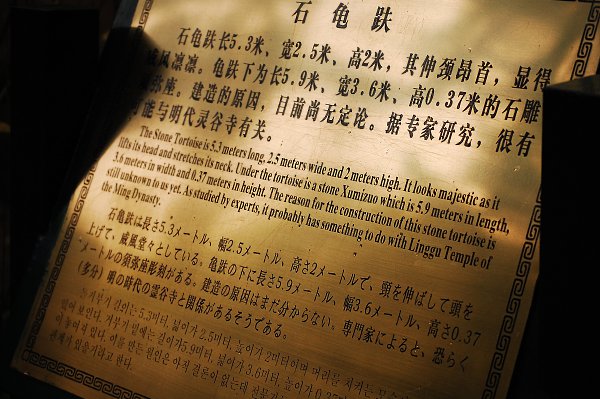 石龟趺
石龟趺长5.3米、宽2.5米、高2米，其伸颈昂首，显得
威风凛凛。龟趺下为长5.9米、宽3.6米、高0.37米的石雕
弥座。建造的原因，目前尚无定论。据专家研究，很有
可能与明代灵谷寺有关。
The Stone Tortoise is 5.3 meters long, 2.5 meters wide and 2 meters high. It looks majestic as it
lifts its head and stretches its neck. Under the tortoise is a stone Xumizuo which is 5.9 meters in length,
3.6 meters in width and 0.37 meters in height. The reason for the construction of this stone tortoise is
still unknown to us yet. As studied by experts, it probably has something to do with Linggu Temple of
the Ming Dynasty.
石龟趺は長さ5.3メートル、幅2.5メートル、高さ2メートルで、頸を伸ばして頭を
上げて、威風堂々としている。亀趺の下に長さ5.9メートル、幅3.6メートル、高さ0.37
メートルの須弥座彫刻がある。建造の原因はまだ分からない。専門家によると、恐らく
(多分）明の時代の霊谷寺と関係があるそうである。
돌거북기 길이는 5.3미터, 넓이가 2.5미터, 높이가 2미터이며 머리를
있어 보인다. 거부기 밑에는 길이가 5.9미터, 넓이가 3.6미터, 높이가 0.37
이 놓여져 있다. 이를 만든 원인은 아직 결론이 없는데
관계가 있을거라고 한다.